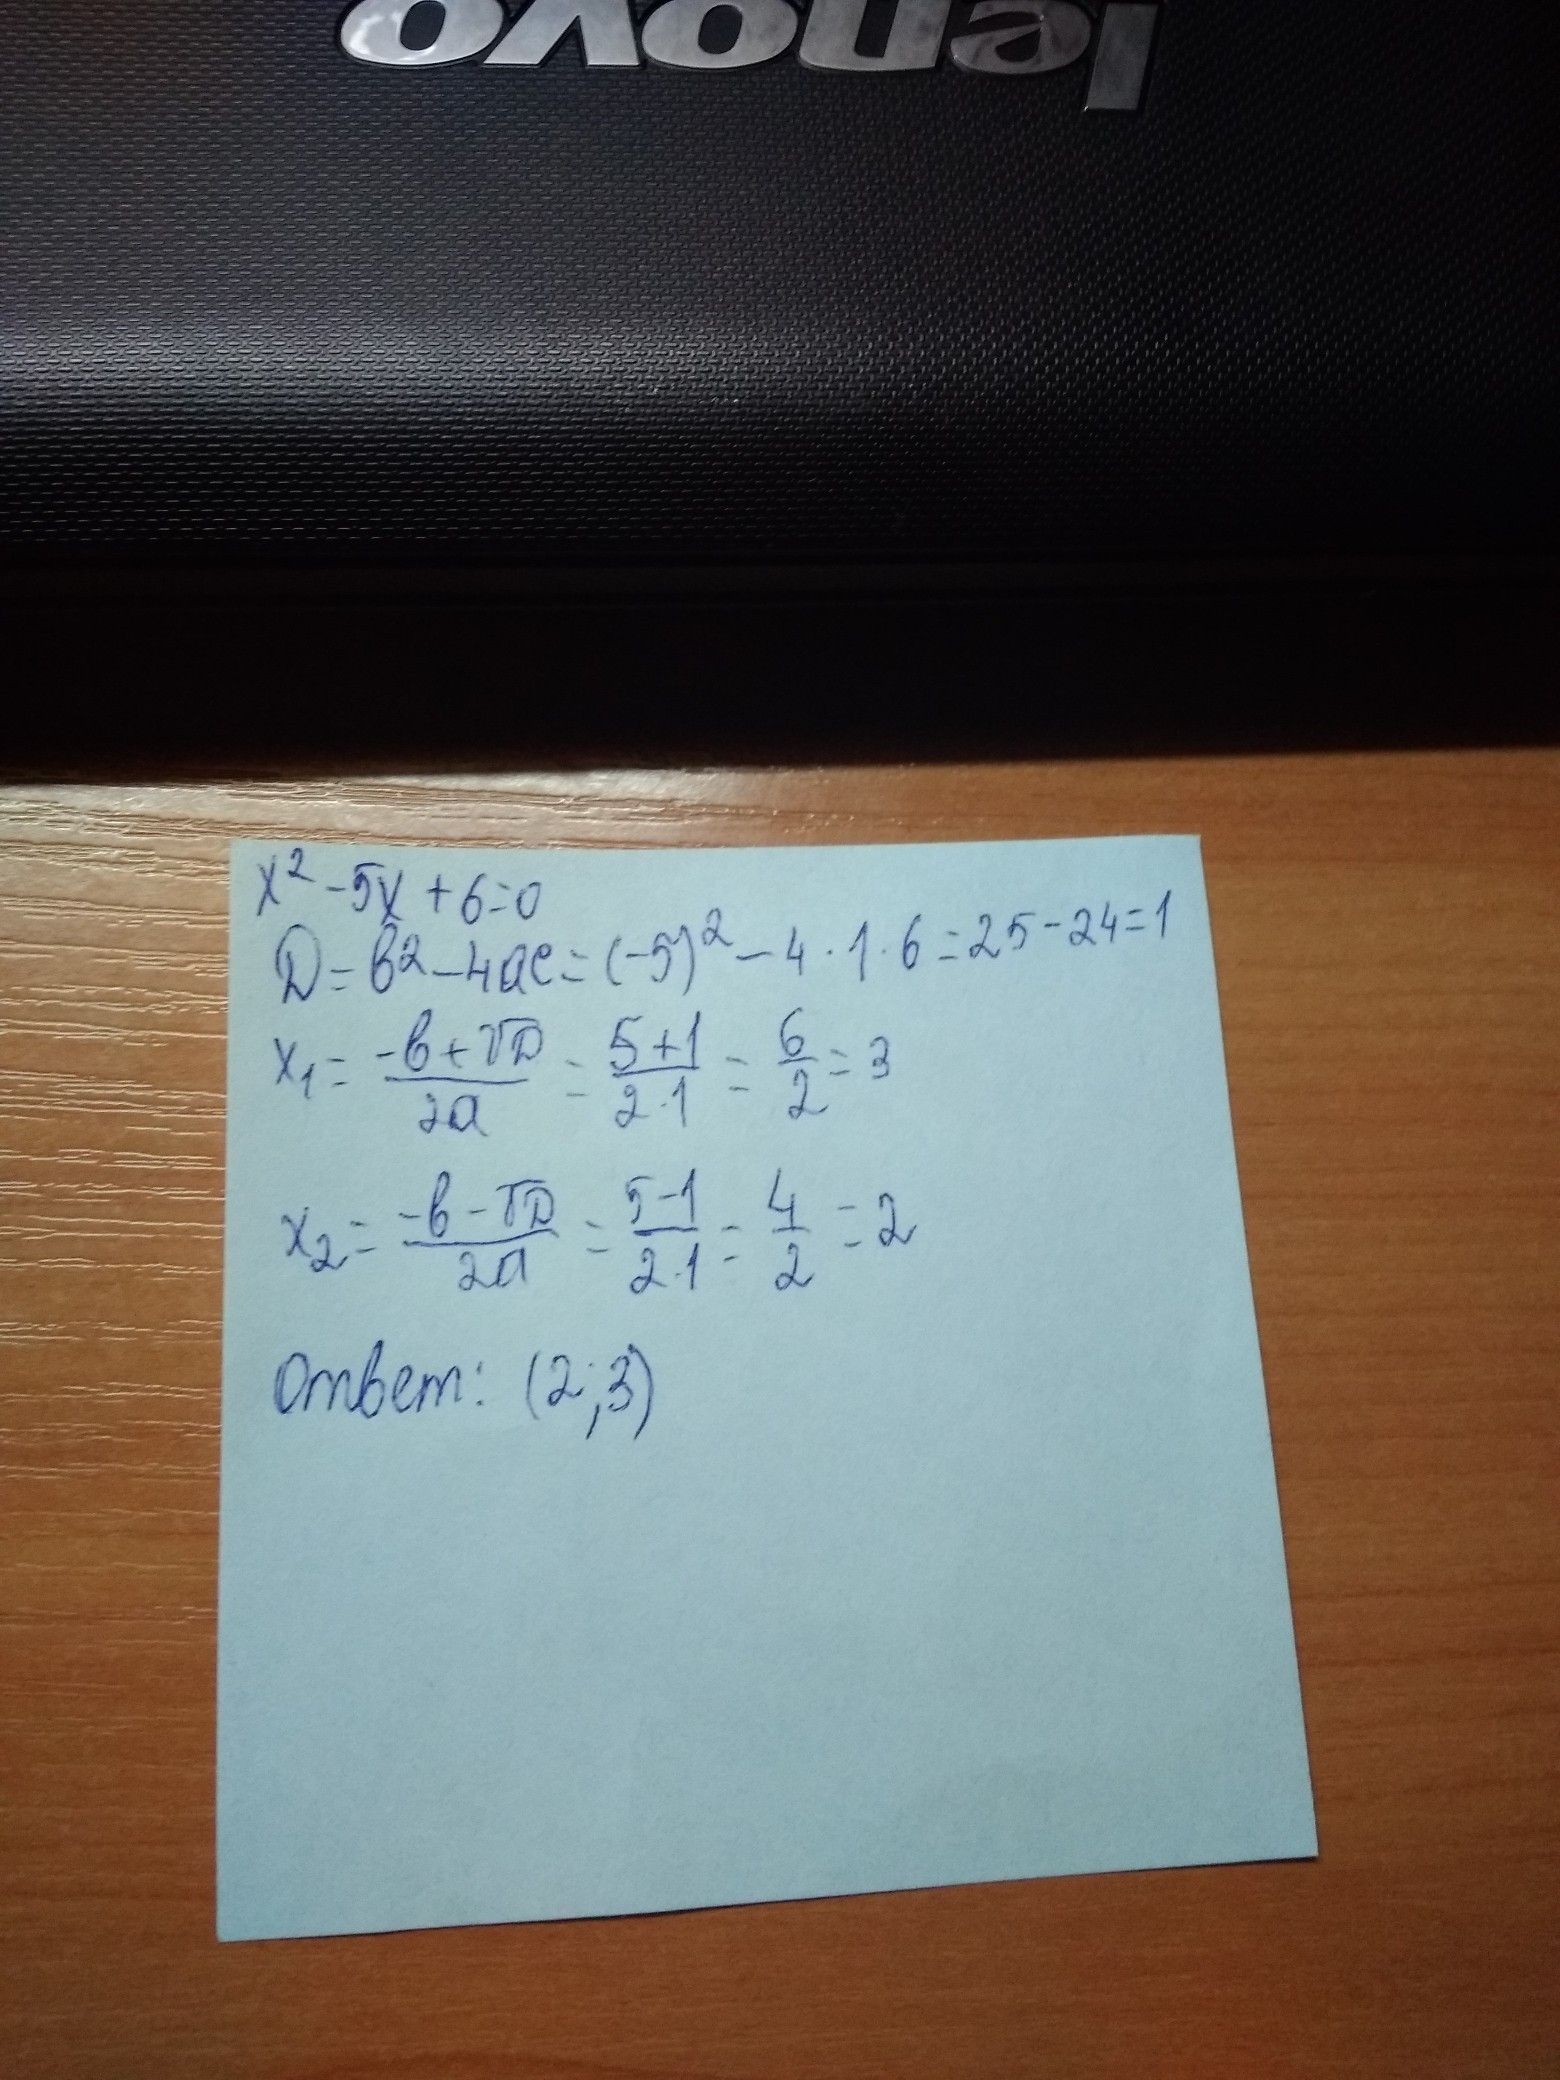 lenovo
x² - 5x + 6 = 0
D = b² - 4ac = (-5)² - 4 · 1 · 6 = 25 - 24 = 1
x₁ = (-b + √D)/(2a) = (5 + 1)/(2 · 1) = 6/2 = 3
x₂ = (-b - √D)/(2a) = (5 - 1)/(2 · 1) = 4/2 = 2
Ответ: (2; 3)